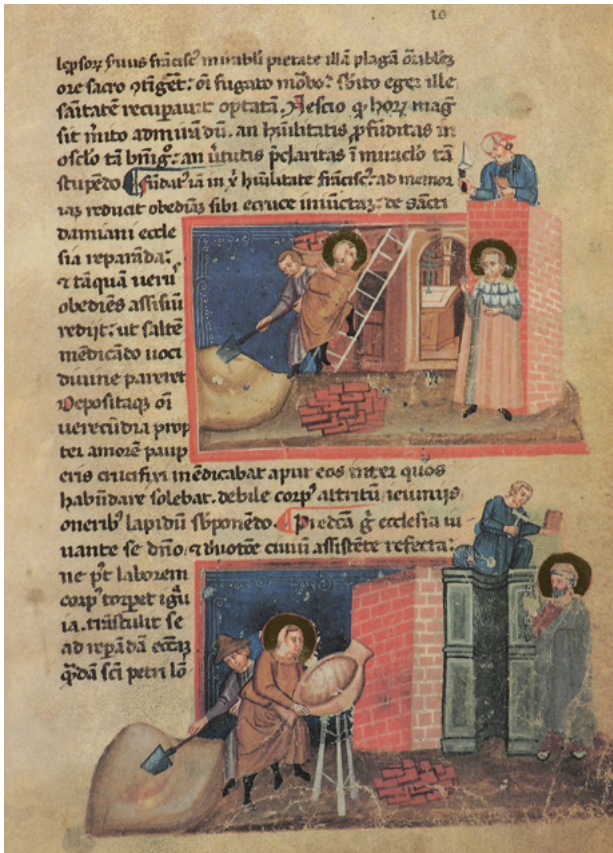 10
lepsorꝫ seruus francisc᷒ mirabili pietate illā plagā oribileꝫ
ore sacro ↄtiget: oī fugato mōbo: sbito eger ille
sanitatē recupauit optatā. Nescio q̄ horꝝ mag̃
sit mito admirādū. an huilitatis ꝓfūditas in
osclo tā benig̃: an uirtutis p̃claritas ī miraclo tā
stupēdo fūdat᷒ iā in x̄ huilitate francisc᷒: ad memor
iaꝫ reducit obediaꝫ sibi ecruce iniūctaꝫ: de sancti
damiani eccle
sia reparāda:
⁊ tāquā ueru᷒
obediēs assisiū
redijt: ut saltē
mēdicādo uoci
diuine pareret
Depositaqꝫ oī
uerecūdia prop
ter amorē paup
eris crucifixi mēdicabat aput eos inter quos
habūdare solebat. debile corp᷒ attritū ieiunijs
onerib᷒ lapidū sb̄ponēdo. Predca g̃ ecclesia iu
uante se dño ⁊ deuotōe ciuiū assistēte refecta:
ne p᷒t laborem
corp᷒ torpet igu
ia. trāstulit se
ad repādā eccaꝫ
q̄dā sci petri lō